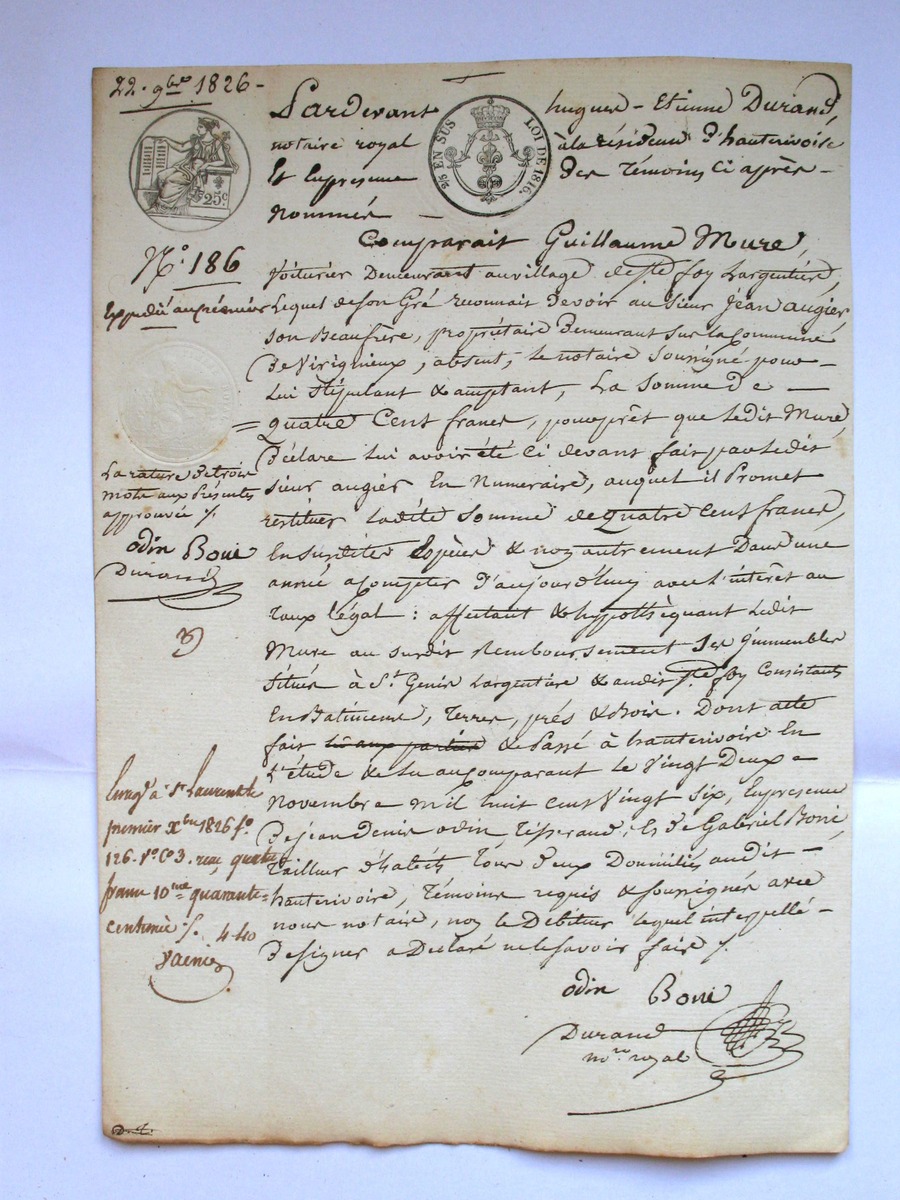 22. 9bre 1826 -
Pardevant hugues - Etienne Durand,
notaire royal à la résidence d'hauterivoire
Et En presence des témoins ci après -
nommés -
25 EN SUS LOI DE 1816.
25c
N.o 186
Expedié au créancier
Comparait Guillaume Mure,
voiturier Demeurant au village de ste foy Largentière,
Lequel de son Gré reconnait devoir au sieur jean augier,
son Beaufrère, propriétaire Demeurant sur la Commune
De Virignieux, absent, le notaire soussigné pour
Lui stipulant & acceptant, La somme De
= quatre Cent francs, pour prêt que Ledit Mure,
Déclare Lui avoir été ci devant fait par Ledit
sieur augier En numeraire, auquel il Promet
restituer Ladite somme de quatre Cent francs,
En susdites Espèces & non autrement Dans une
année a Compter d'aujourd'huy avec L'intérêt au
taux légal : affectant & hypothèquant Ledit
Mure au susdit Remboursement ses immeubles
situés à St. Genis Largentière & audit ste foy Consistants
En Batiments, Terres, prés & Bois. Dont acte
fait lu aux parties & Passé à hauterivoire En
L'étude & Lu au Comparant le vingt Deux
Novembre mil huit cent vingt six, En presence
De jean Denis odin Tisserand, & De Gabriel Boni
Tailleur d'habits Tous Deux Domiciliés audit -
hauterivoire, témoins requis & soussignés avec
nous notaire, non le Débiteur lequel interpellé -
De signer a Déclaré ne le savoir faire ./.
La rature De trois
mots aux Présentes
approuvée ./.
odin Boni
Durand
Enregé à St Laurent le
premier Xbre 1826 fo
126. Vo Co 3. reçu quatre
francs 10me quarante
centimes ./. 4-40
odin Boni
Durand
nore royal